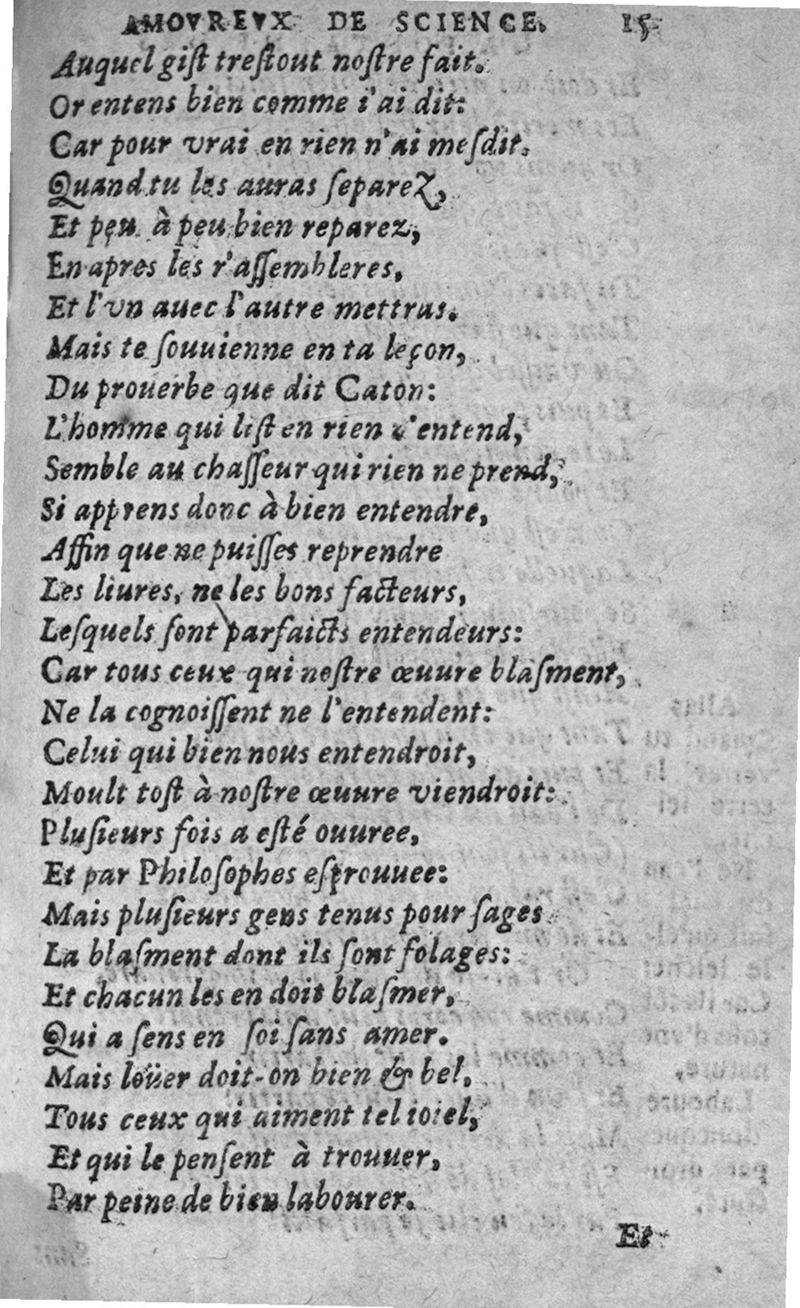 AMOVREVX DE SCIENCE. 15
Auquel gist trestout nostre fait.
Or entens bien comme i'ai dit:
Car pour vrai en rien n'ai mesdit.
Quand tu les auras separez,
Et peu à peu bien reparez,
En apres les r'assembleres,
Et l'vn auec l'autre mettras.
Mais te souuienne en ta leçon,
Du prouerbe que dit Caton:
L'homme qui list en rien n'entend,
Semble au chasseur qui rien ne prend,
Si apprens donc à bien entendre,
Affin que ne puisses reprendre
Les liures, ne les bons facteurs,
Lesquels sont parfaicts entendeurs:
Car tous ceux qui nostre œuure blasment,
Ne la cognoissent ne l'entendent:
Celui qui bien nous entendroit,
Moult tost à nostre œuure viendroit:
Plusieurs fois a esté ouuree,
Et par Philosophes esprouuee:
Mais plusieurs gens tenus pour sages
La blasment dont ils sont folages:
Et chacun les en doit blasmer,
Qui a sens en soi sans amer.
Mais loüer doit-on bien & bel,
Tous ceux qui aiment tel ioiel,
Et qui le pensent à trouuer,
Par peine de bien labourer.
Et